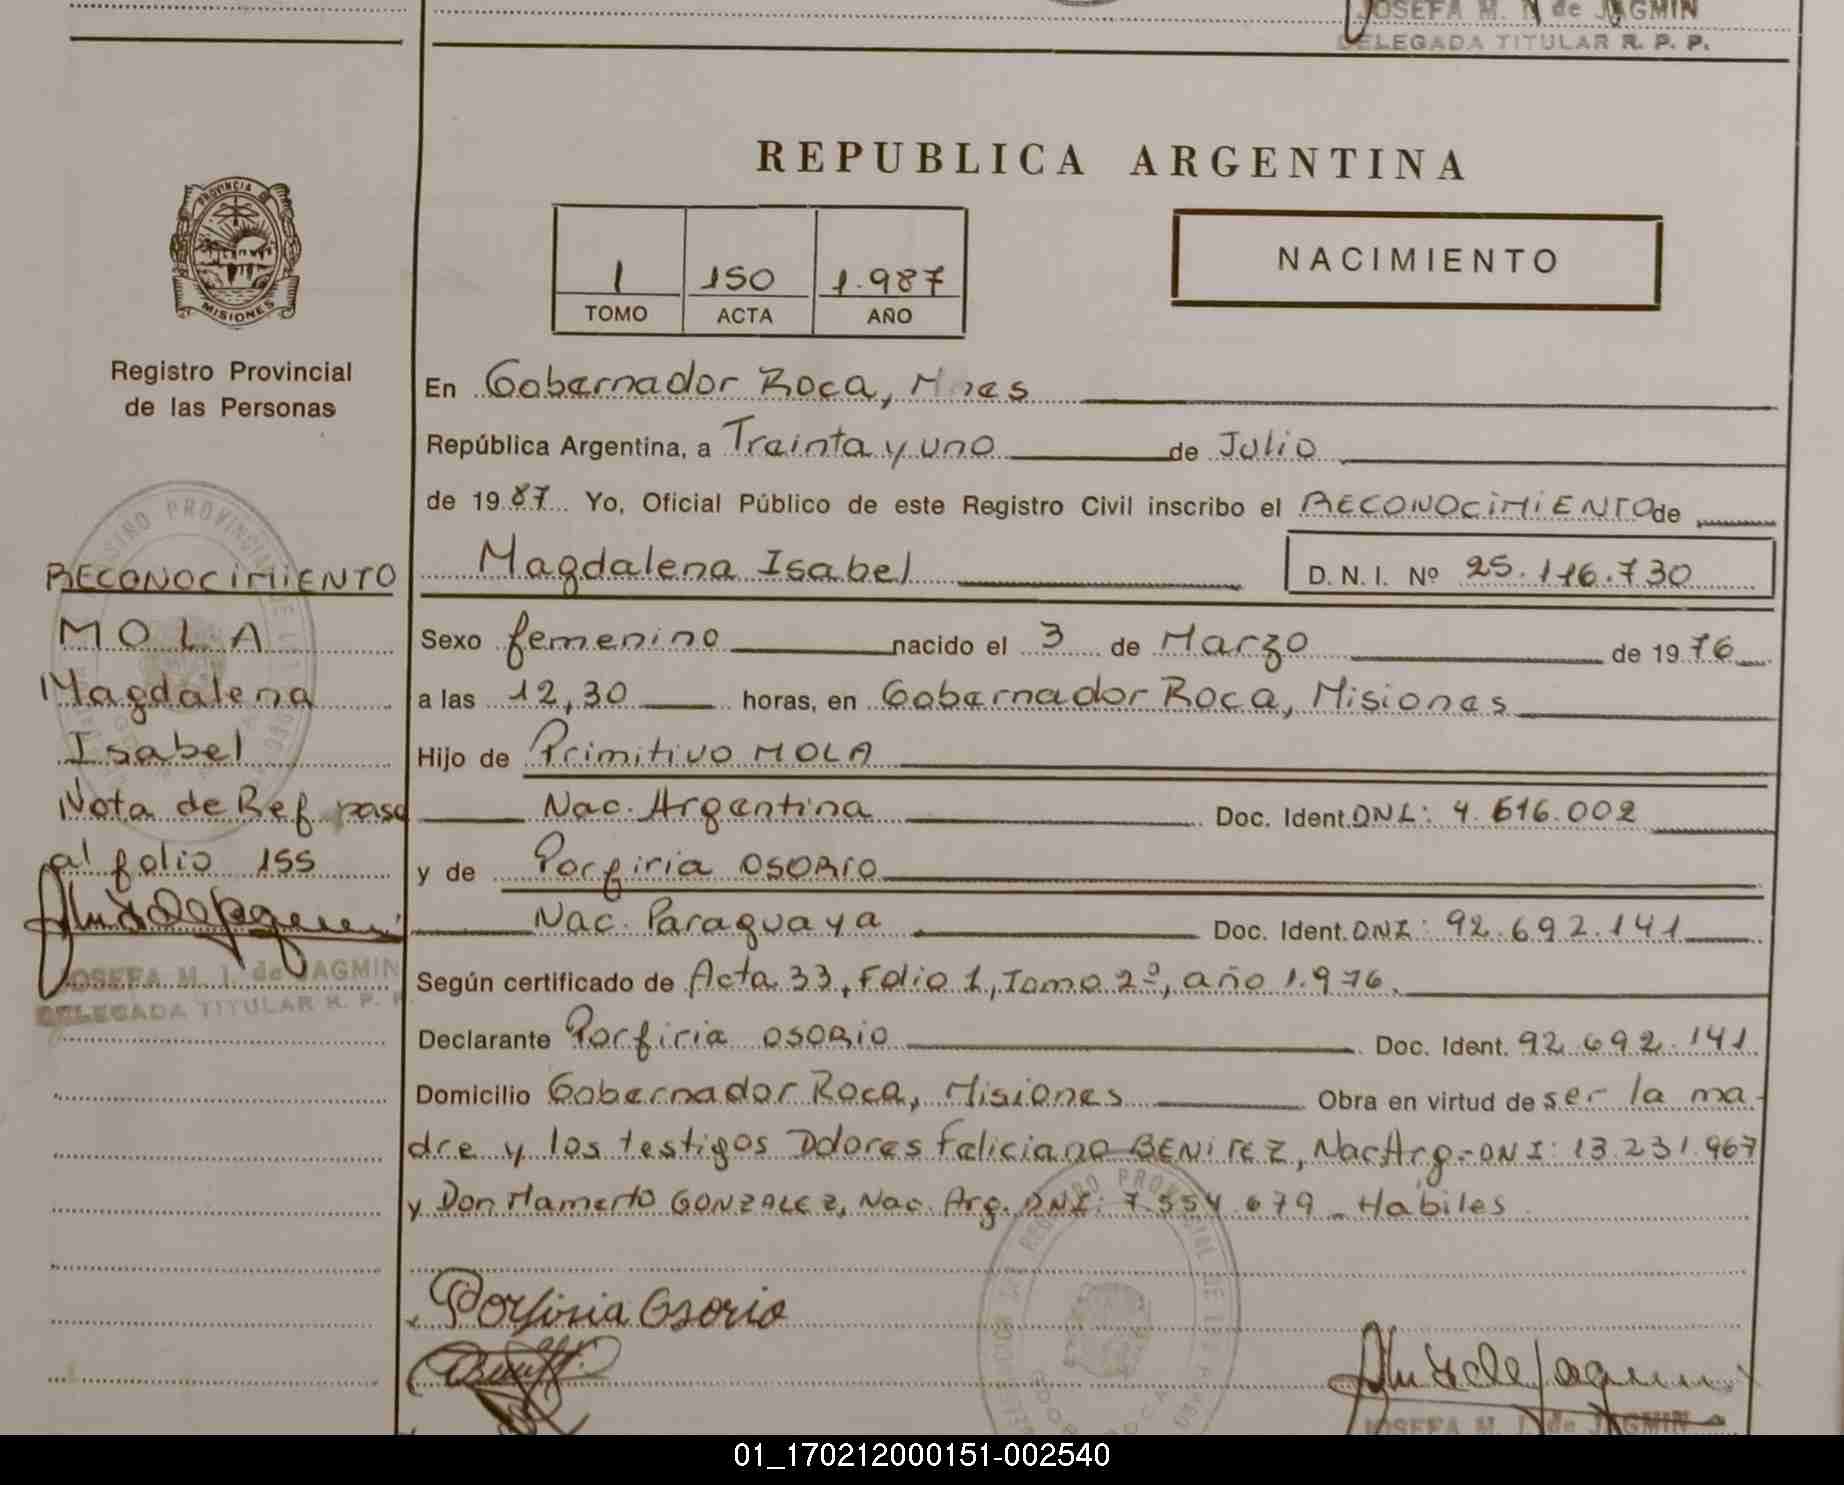 JOSEFA M. I. de JAGMIN
DELEGADA TITULAR R. P. P.
REPUBLICA ARGENTINA
NACIMIENTO
1 150 1.987
TOMO ACTA AÑO
PROVINCIA DE
MISIONES
Registro Provincial
de las Personas
En Gobernador Roca, Mnes
República Argentina, a Treinta y uno de Julio
de 1987 Yo, Oficial Público de este Registro Civil inscribo el RECONOCIMIENTO de
Magdalena Isabel D.N.I. Nº 25.116.730
Sexo femenino nacido el 3 de Marzo de 1976
a las 12,30 horas, en Gobernador Roca, Misiones
Hijo de Primitivo MOLA
Nac. Argentina Doc. Ident. DNI: 4.616.002
y de Porfiria OSORIO
Nac. Paraguaya Doc. Ident. DNI: 92.692.141
Según certificado de Acta 33, Folio 1, Tomo 2º, año 1.976.
Declarante Porfiria OSORIO Doc. Ident. 92.692.141
Domicilio Gobernador Roca, Misiones Obra en virtud de ser la ma-
dre y los testigos Dolores Feliciano BENITEZ, Nac. Arg.- DNI: 13.231.967
y Don Mamerto GONZALEZ, Nac. Arg. DNI: 7.554.679 - Habiles
Porfiria Osorio
JOSEFA M. I. de JAGMIN
RECONOCIMIENTO
MOLA
Magdalena
Isabel
Nota de Ref pasa
al folio 155
JOSEFA M. I. de JAGMIN
DELEGADA TITULAR R. P. P.
01_170212000151-002540